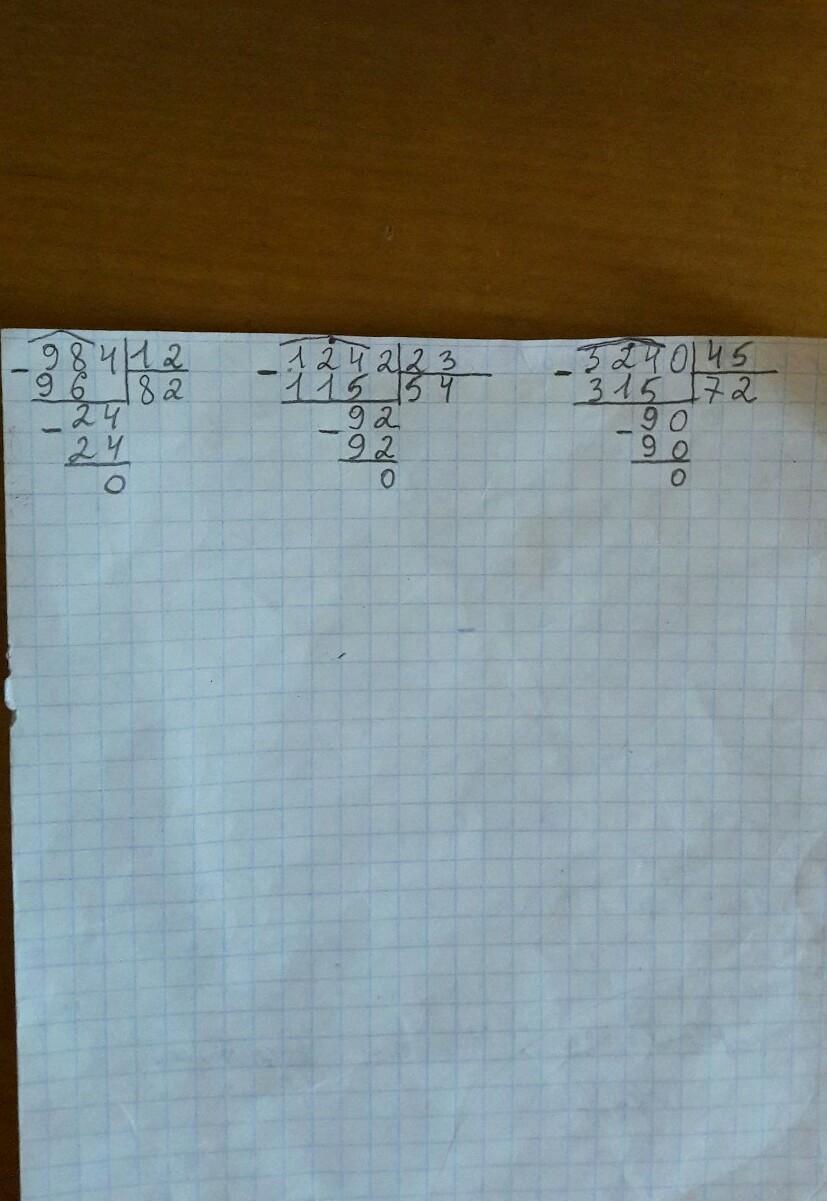 - 984 | 12
96 | 82
- 24
24
0
- 1242 | 23
115 | 54
- 92
92
0
- 3240 | 45
315 | 72
- 90
90
0